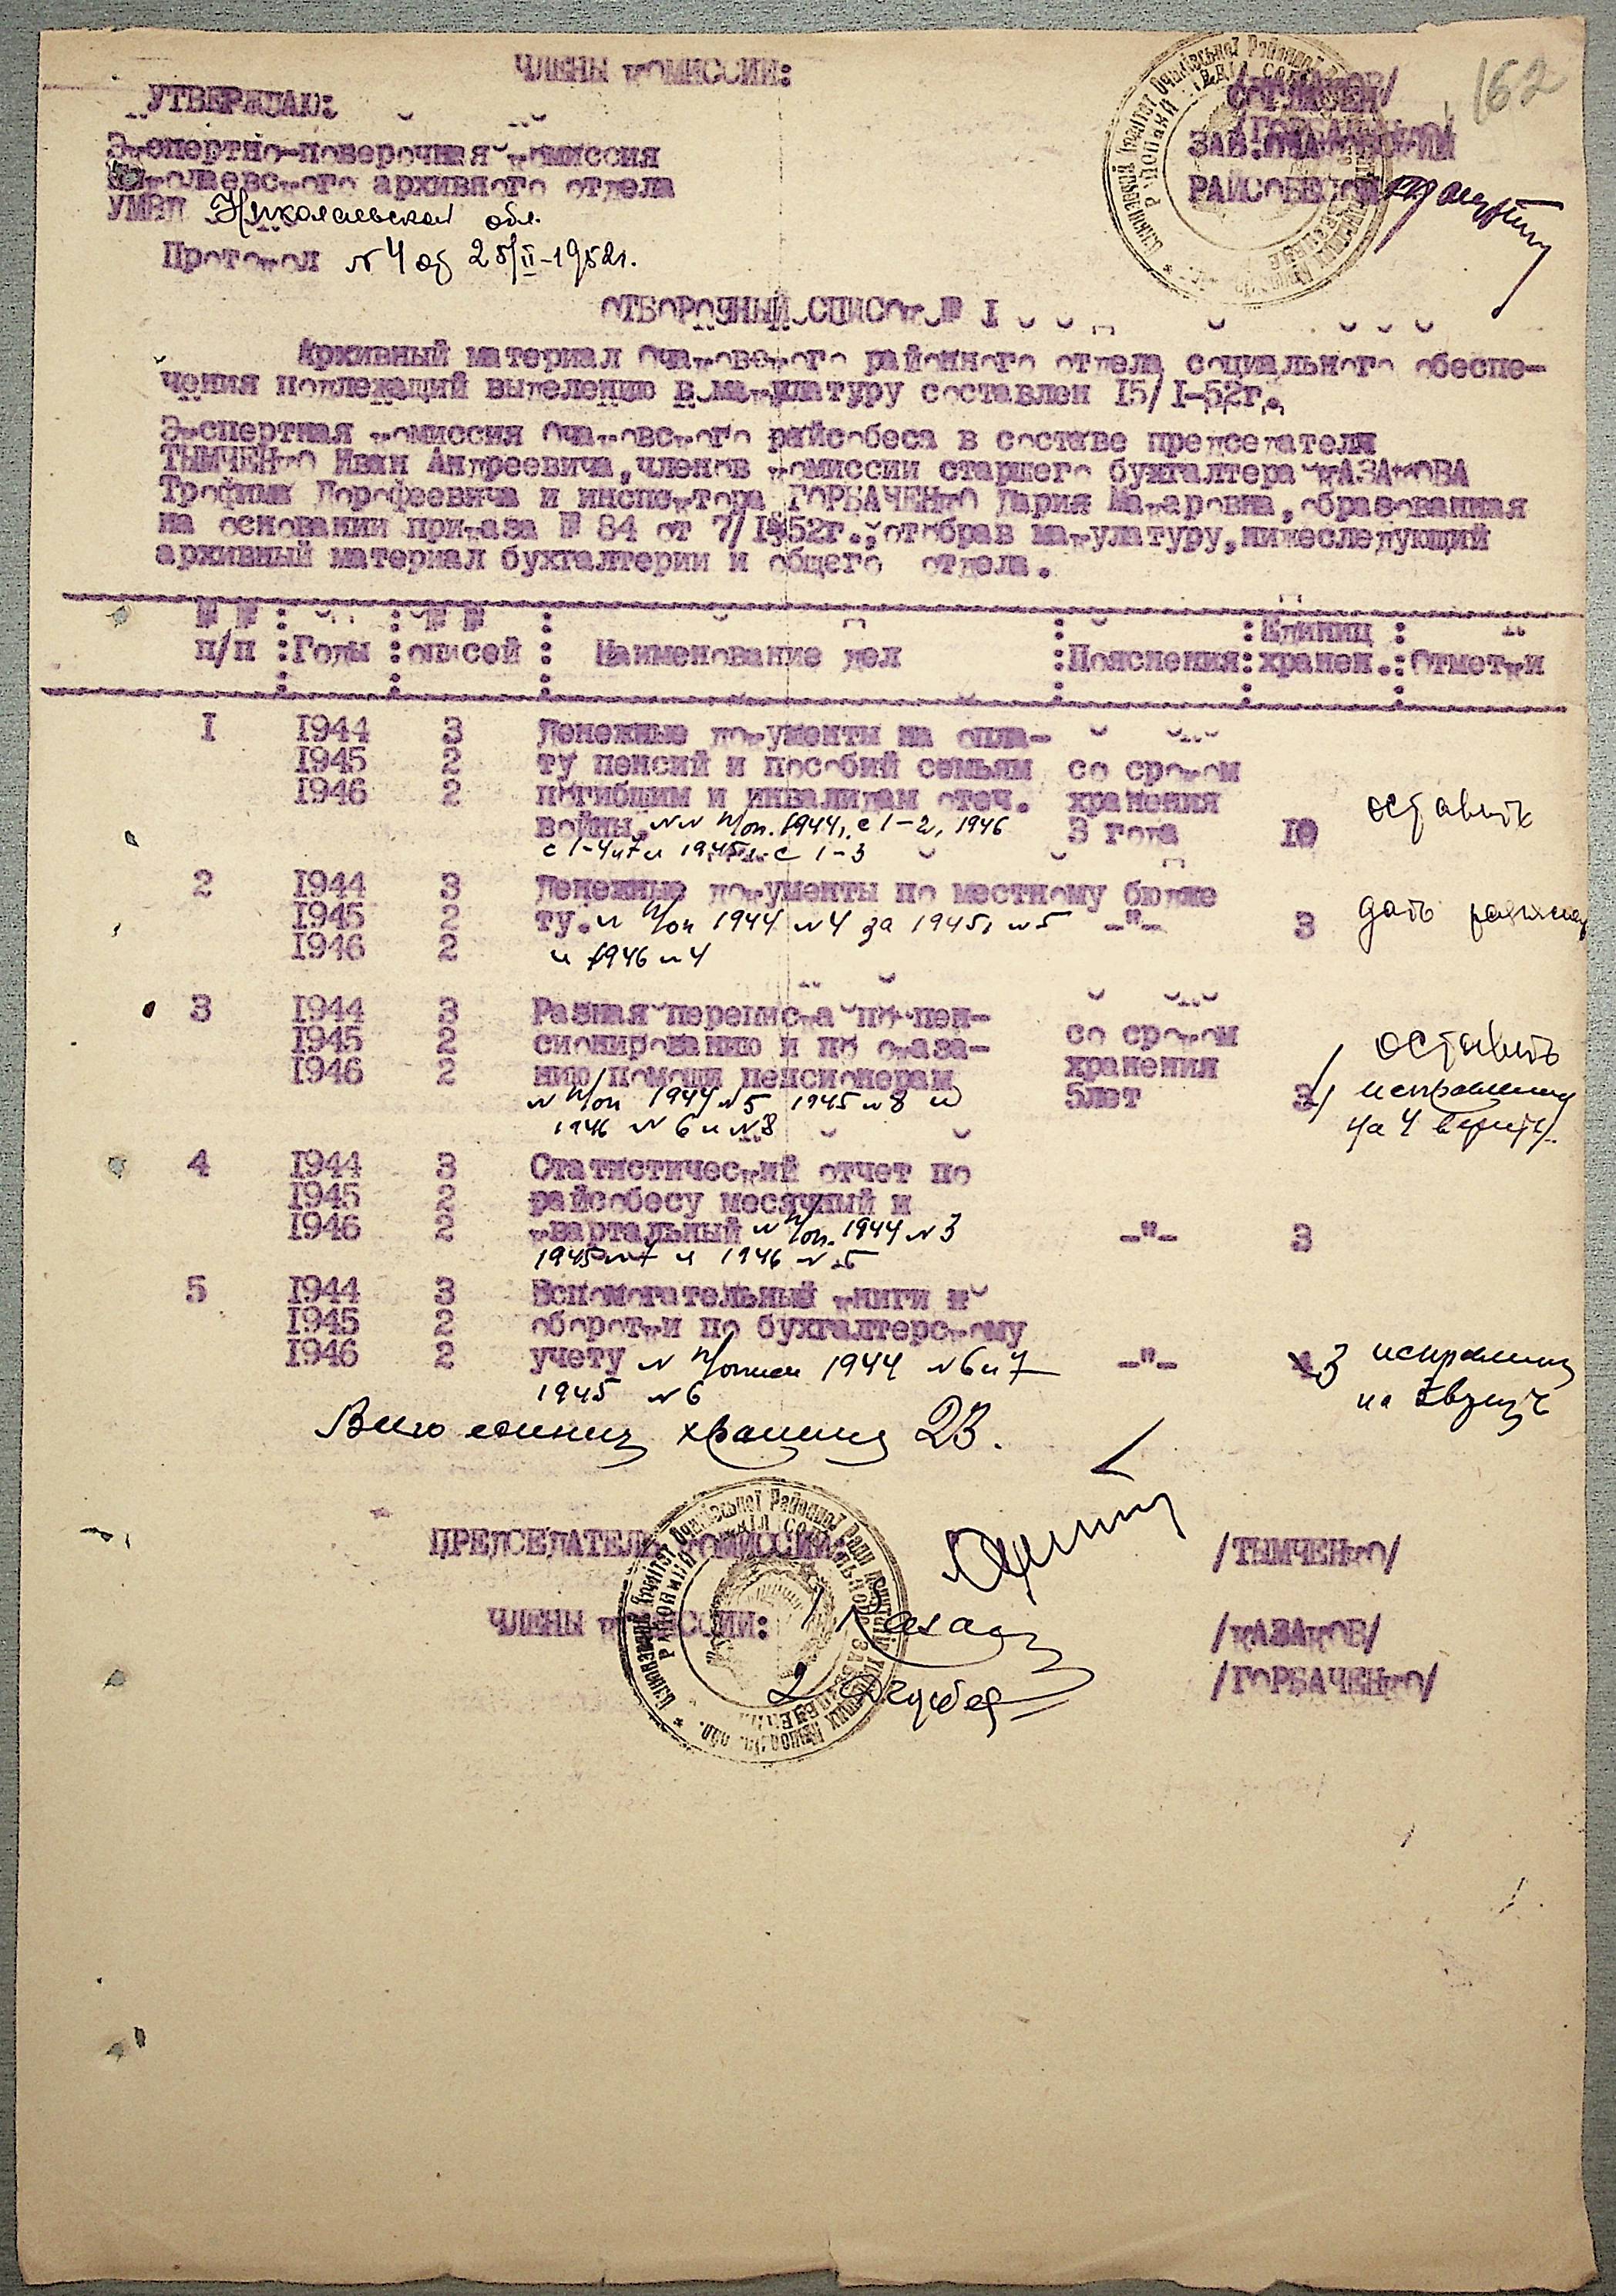 ЧЛЕНЫ КОМИССИИ:
162
УТВЕРЖДАЮ:
СОГЛАСЕН
Экспертно-поверочная комиссия
Николаевского архивного отдела
ЗАВ.ОЧАКОВСКИМ
РАЙСОБЕСОМ
УМВД Николаевской обл.
Протокол №4 от 25/II-1952г.
ОТБОРОЧНЫЙ СПИСОК № I
Архивный материал Очаковского районного отдела социального обеспе-
чения подлежащий выделению в макулатуру составлен I5/I-52г.
Экспертная комиссия Очаковского райсобеса в составе председателя
ТЫМЧЕНКО Иван Андреевича, членов комиссии старшего бухгалтера КАЗАКОВА
Трофима Дорофеевича и инспектора ГОРБАЧЕНКО Дария Макаровна, образованная
на основании приказа № 84 от 7/I-52г., отобрав макулатуру, нижеследующий
архивный материал бухгалтерии и общего отдела.
№ № : : № № : : : Единиц :
п/п : Годы : описей : Наименование дел : Пояснения : хранен. : Отметки
I 1944 3 Денежные документы на опла-
1945 2 ту пенсий и пособий семьям со сроком
1946 2 погибшим и инвалидам отеч. хранения оставить
войны. №№ п/оп. 1944г. с 1-2, 1946 3 года 10
с 1-4 и 7 и 1945г. с 1-3
2 1944 3 Денежные документы по местному бюдже
1945 2 ту. № п/оп 1944 №4 за 1945г №5 -"- 3 дать
1946 2 и 1946 №4
3 1944 3 Разная переписка по пен-
1945 2 сионированию и по оказа- со сроком оставить
1946 2 нию помощи пенсионерам хранения
№ п/оп 1944 №5 1945 №8 и 5лет исправленному
1946 №6 и №8 на 4 верить.
4 1944 3 Статистический отчет по
1945 2 райсобесу месячный и
1946 2 квартальный № п/оп. 1944 №3 -"- 3
1945 №7 и 1946 №5
5 1944 3 Вспомогательный книги и
1945 2 оборотки по бухгалтерскому
1946 2 учету № п/описи 1944 №6 и 7 -"- 3 исправленному
1945 №6 на 3 верить
Всего единиц хранения 23.
ПРЕДСЕДАТЕЛЬ КОМИССИИ: /ТЫМЧЕНКО/
ЧЛЕНЫ КОМИССИИ: /КАЗАКОВ/
/ГОРБАЧЕНКО/